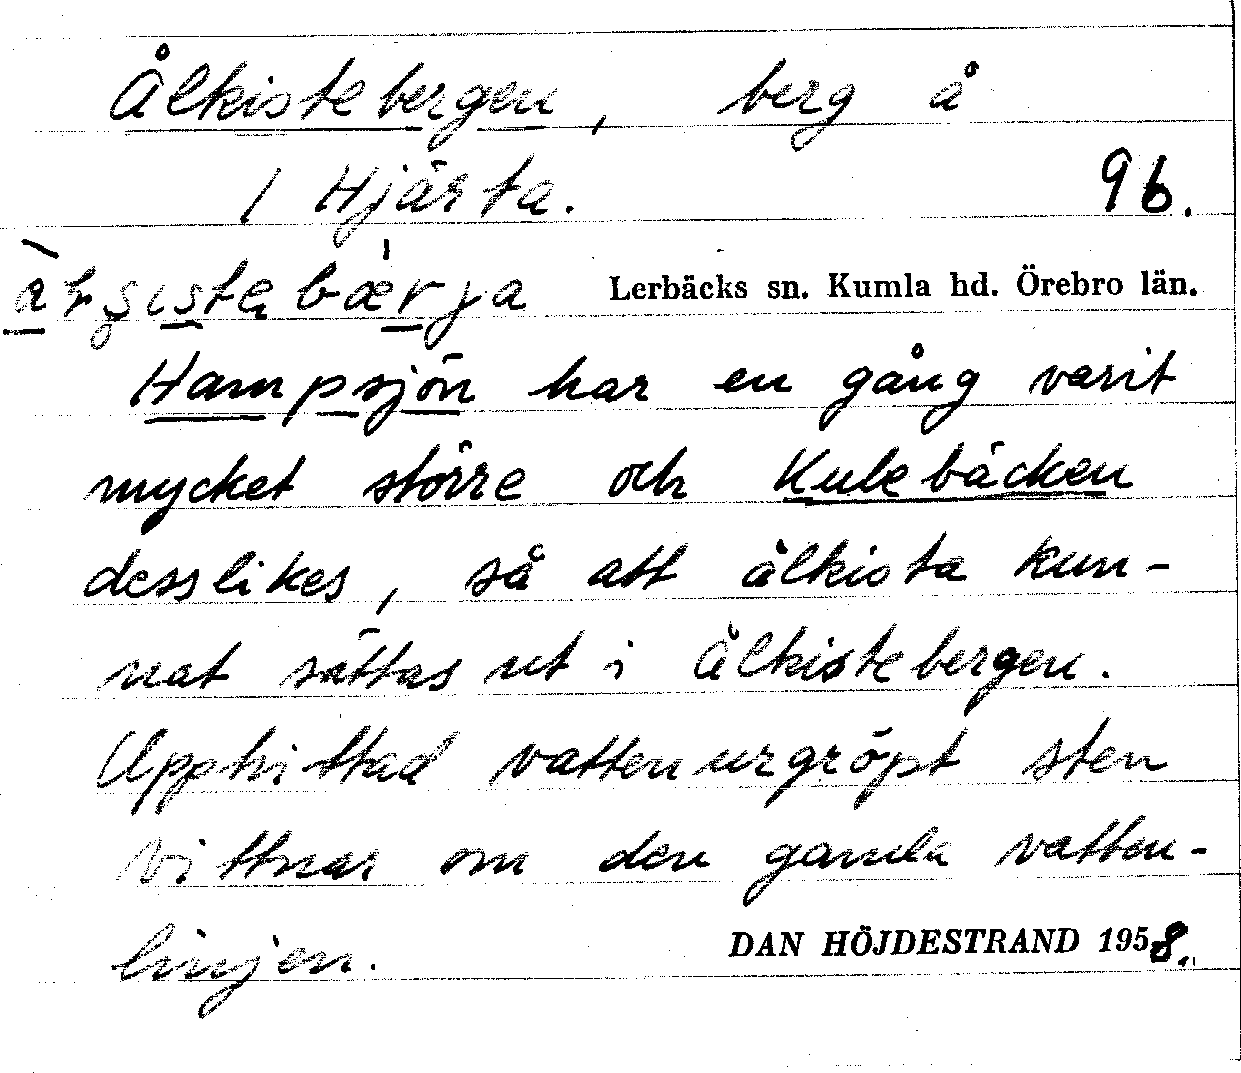 Ålkistebergen, berg å
1 Hjärta.
96.
Lerbäcks sn. Kumla hd. Örebro län.
Hampsjön har en gång varit
mycket större och Kulebäcken
desslikes, så att ålkista kun-
nat sättas ut i Ålkistebergen.
Upphittad vattenurgröpt sten
vittnar om den gamla vatten-
linjen.
DAN HÖJDESTRAND 1958.